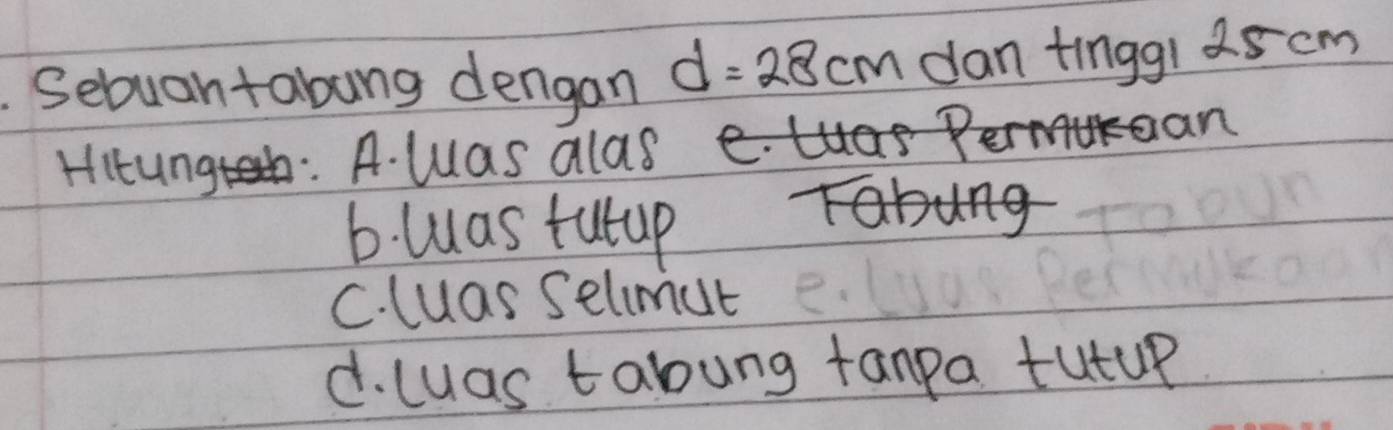 . Sebuah tabung dengan d = 28 cm dan tinggi 25 cm
Hitunglah: A. luas alas e. luas Permukaan
b. luas tutup Tabung
c. luas Selimut e. luas Permukaan
d. luas tabung tanpa tutup